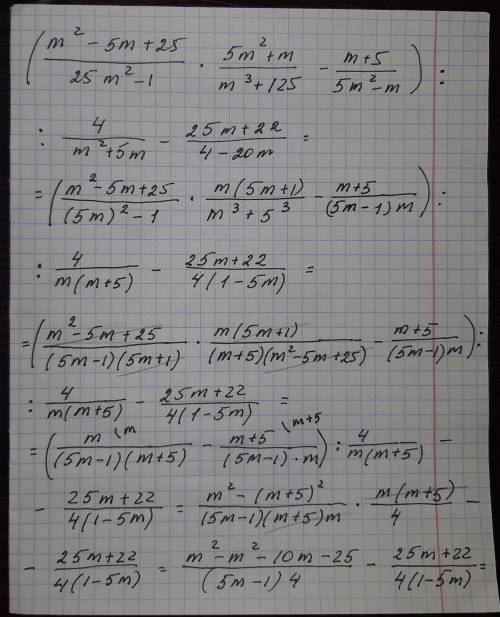 ( (m² - 5m + 25)/(25m² - 1) · (5m² + m)/(m³ + 125) - (m+5)/(5m² - m) ) :
: 4/(m² + 5m) - (25m + 22)/(4 - 20m) =
= ( (m² - 5m + 25)/((5m)² - 1) · m(5m+1)/(m³ + 5³) - (m+5)/((5m-1)m) ) :
: 4/(m(m+5)) - (25m + 22)/(4(1 - 5m)) =
= ( (m² - 5m + 25)/((5m-1)(5m+1)) · m(5m+1)/((m+5)(m² - 5m + 25)) - (m+5)/((5m-1)m) ) :
: 4/(m(m+5)) - (25m + 22)/(4(1 - 5m)) =
= ( m\m/((5m-1)(m+5)) - (m+5)\m+5/((5m-1)·m) ) : 4/(m(m+5)) -
- (25m + 22)/(4(1 - 5m)) = (m² - (m+5)²)/((5m-1)(m+5)m) · m(m+5)/4 -
- (25m + 22)/(4(1 - 5m)) = (m² - m² - 10m - 25)/((5m-1)4) - (25m + 22)/(4(1 - 5m)) =